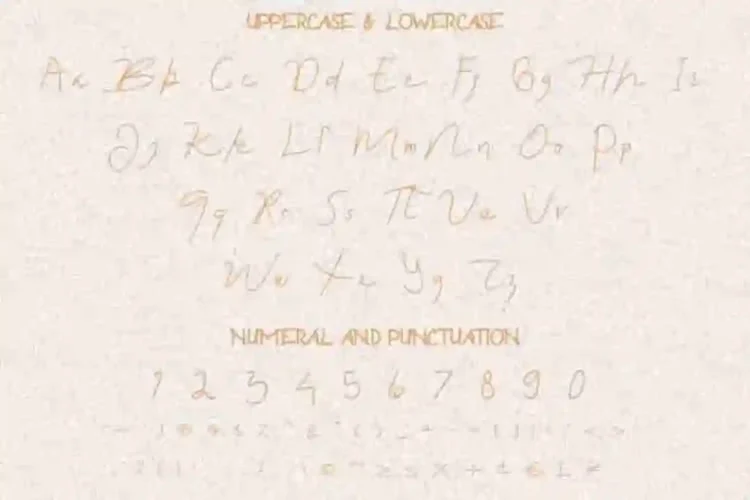 UPPERCASE & LOWERCASE
Aa Bb Cc Dd Ee Ff Gg Hh Ii
Jj Kk Ll Mm Nn Oo Pp
Qq Rr Ss Tt Uu Vv
Ww Xx Yy Zz
NUMERAL AND PUNCTUATION
1 2 3 4 5 6 7 8 9 0